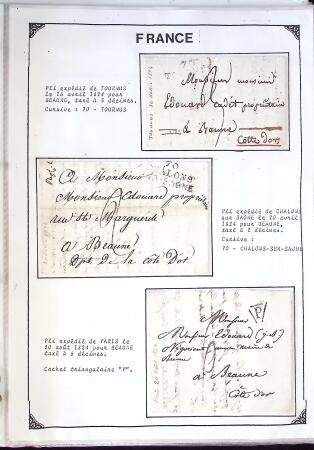 FRANCE
Pli expédié de TOURNUS
le 16 avril 1824 pour
BEAUNE, taxé à 3 décimes.
Cursive : 70 - TOURNUS
Monsieur monsieur
Edouard cadet propriétaire
à Beaune
Côte d'or
70
CHALONS
SAONE
A Monsieur
Monsieur Edouard propriétaire
rue Ste Marguerite
à Beaune
Dpt. de la côte d'or
Pli expédié de CHALONS
sur SAONE le 20 avril
1824 pour BEAUNE,
taxé à 2 décimes.
Cursive :
70 - CHALONS-SUR-SAONE
Pli expédié de PARIS le
20 août 1824 pour BEAUNE
taxé à 6 décimes.
Cachet triangulaire "P".
P
Monsieur
Monsieur Edouard
à Beaune
Côte d'or